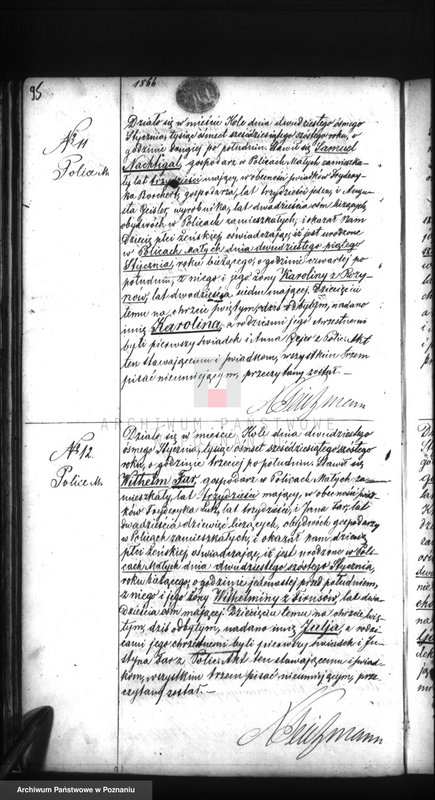 95
1866
No 11
Police M.
Działo się w mieście Kole dnia dwudziestego ósmego
Stycznia, tysiąc ośmset sześćdziesiątego szóstego roku, o
godzinie drugiej po południu. Stawił się Samuel
Nachtigal, gospodarz w Policach Małych zamieszka-
ły, lat trzydzieści mający, w obecności świadków Frydery-
ka Borchert, gospodarza, lat trzydzieści jeden, i Augu-
sta Geisler, wyrobnika, lat dwadzieścia ośm liczących,
obydwóch w Policach zamieszkałych, i okazał nam
Dziecię płci żeńskiej oświadczając, iż jest urodzone
w Policach Małych dnia dwudziestego piątego
Stycznia, roku bieżącego, o godzinie czwartej po
południu, z niego i jego żony Karoliny z
lat dwadzieścia siedm mającej. Dziecięciu
temu na chrzcie świętym, dziś odbytym, nadano
imię Karolina, a rodzicami jego chrzestnemi
byli pierwszy świadek i Anna z Polic. Akt
ten stawającemu i świadkom, wszystkim trzem
pisać nieumiejącym, przeczytany został. —
ARCHIWUM PAŃSTWOWE
No 12
Police M.
Działo się w mieście Kole dnia dwudziestego
ósmego Stycznia, tysiąc ośmset sześćdziesiątego szóstego
roku, o godzinie trzeciej po południu. Stawił się
Wilhelm Jar, gospodarz w Policach Małych za-
mieszkały, lat trzydzieści mający, w obecności świad-
ków Fryderyka lat trzydzieści, i Jana Jar, lat
dwadzieścia dziewięć liczących, obydwóch gospodarzy
w Policach zamieszkałych, i okazał nam dziecię
płci żeńskiej oświadczając, iż jest urodzone w Poli-
cach Małych dnia dwudziestego szóstego Stycznia,
roku bieżącego, o godzinie jedenastej przed południem,
z niego i jego żony Wilhelminy z lat dwa-
dzieścia ośm mającej. Dziecięciu temu na chrzcie świę-
tym, dziś odbytym, nadano imię a rodzi-
cami jego chrzestnemi byli pierwszy świadek i Ju-
styna Jar z Polic. Akt ten stawającemu i świad-
kom, wszystkim trzem pisać nieumiejącym, prze-
czytany został. —
Archiwum Państwowe w Poznaniu